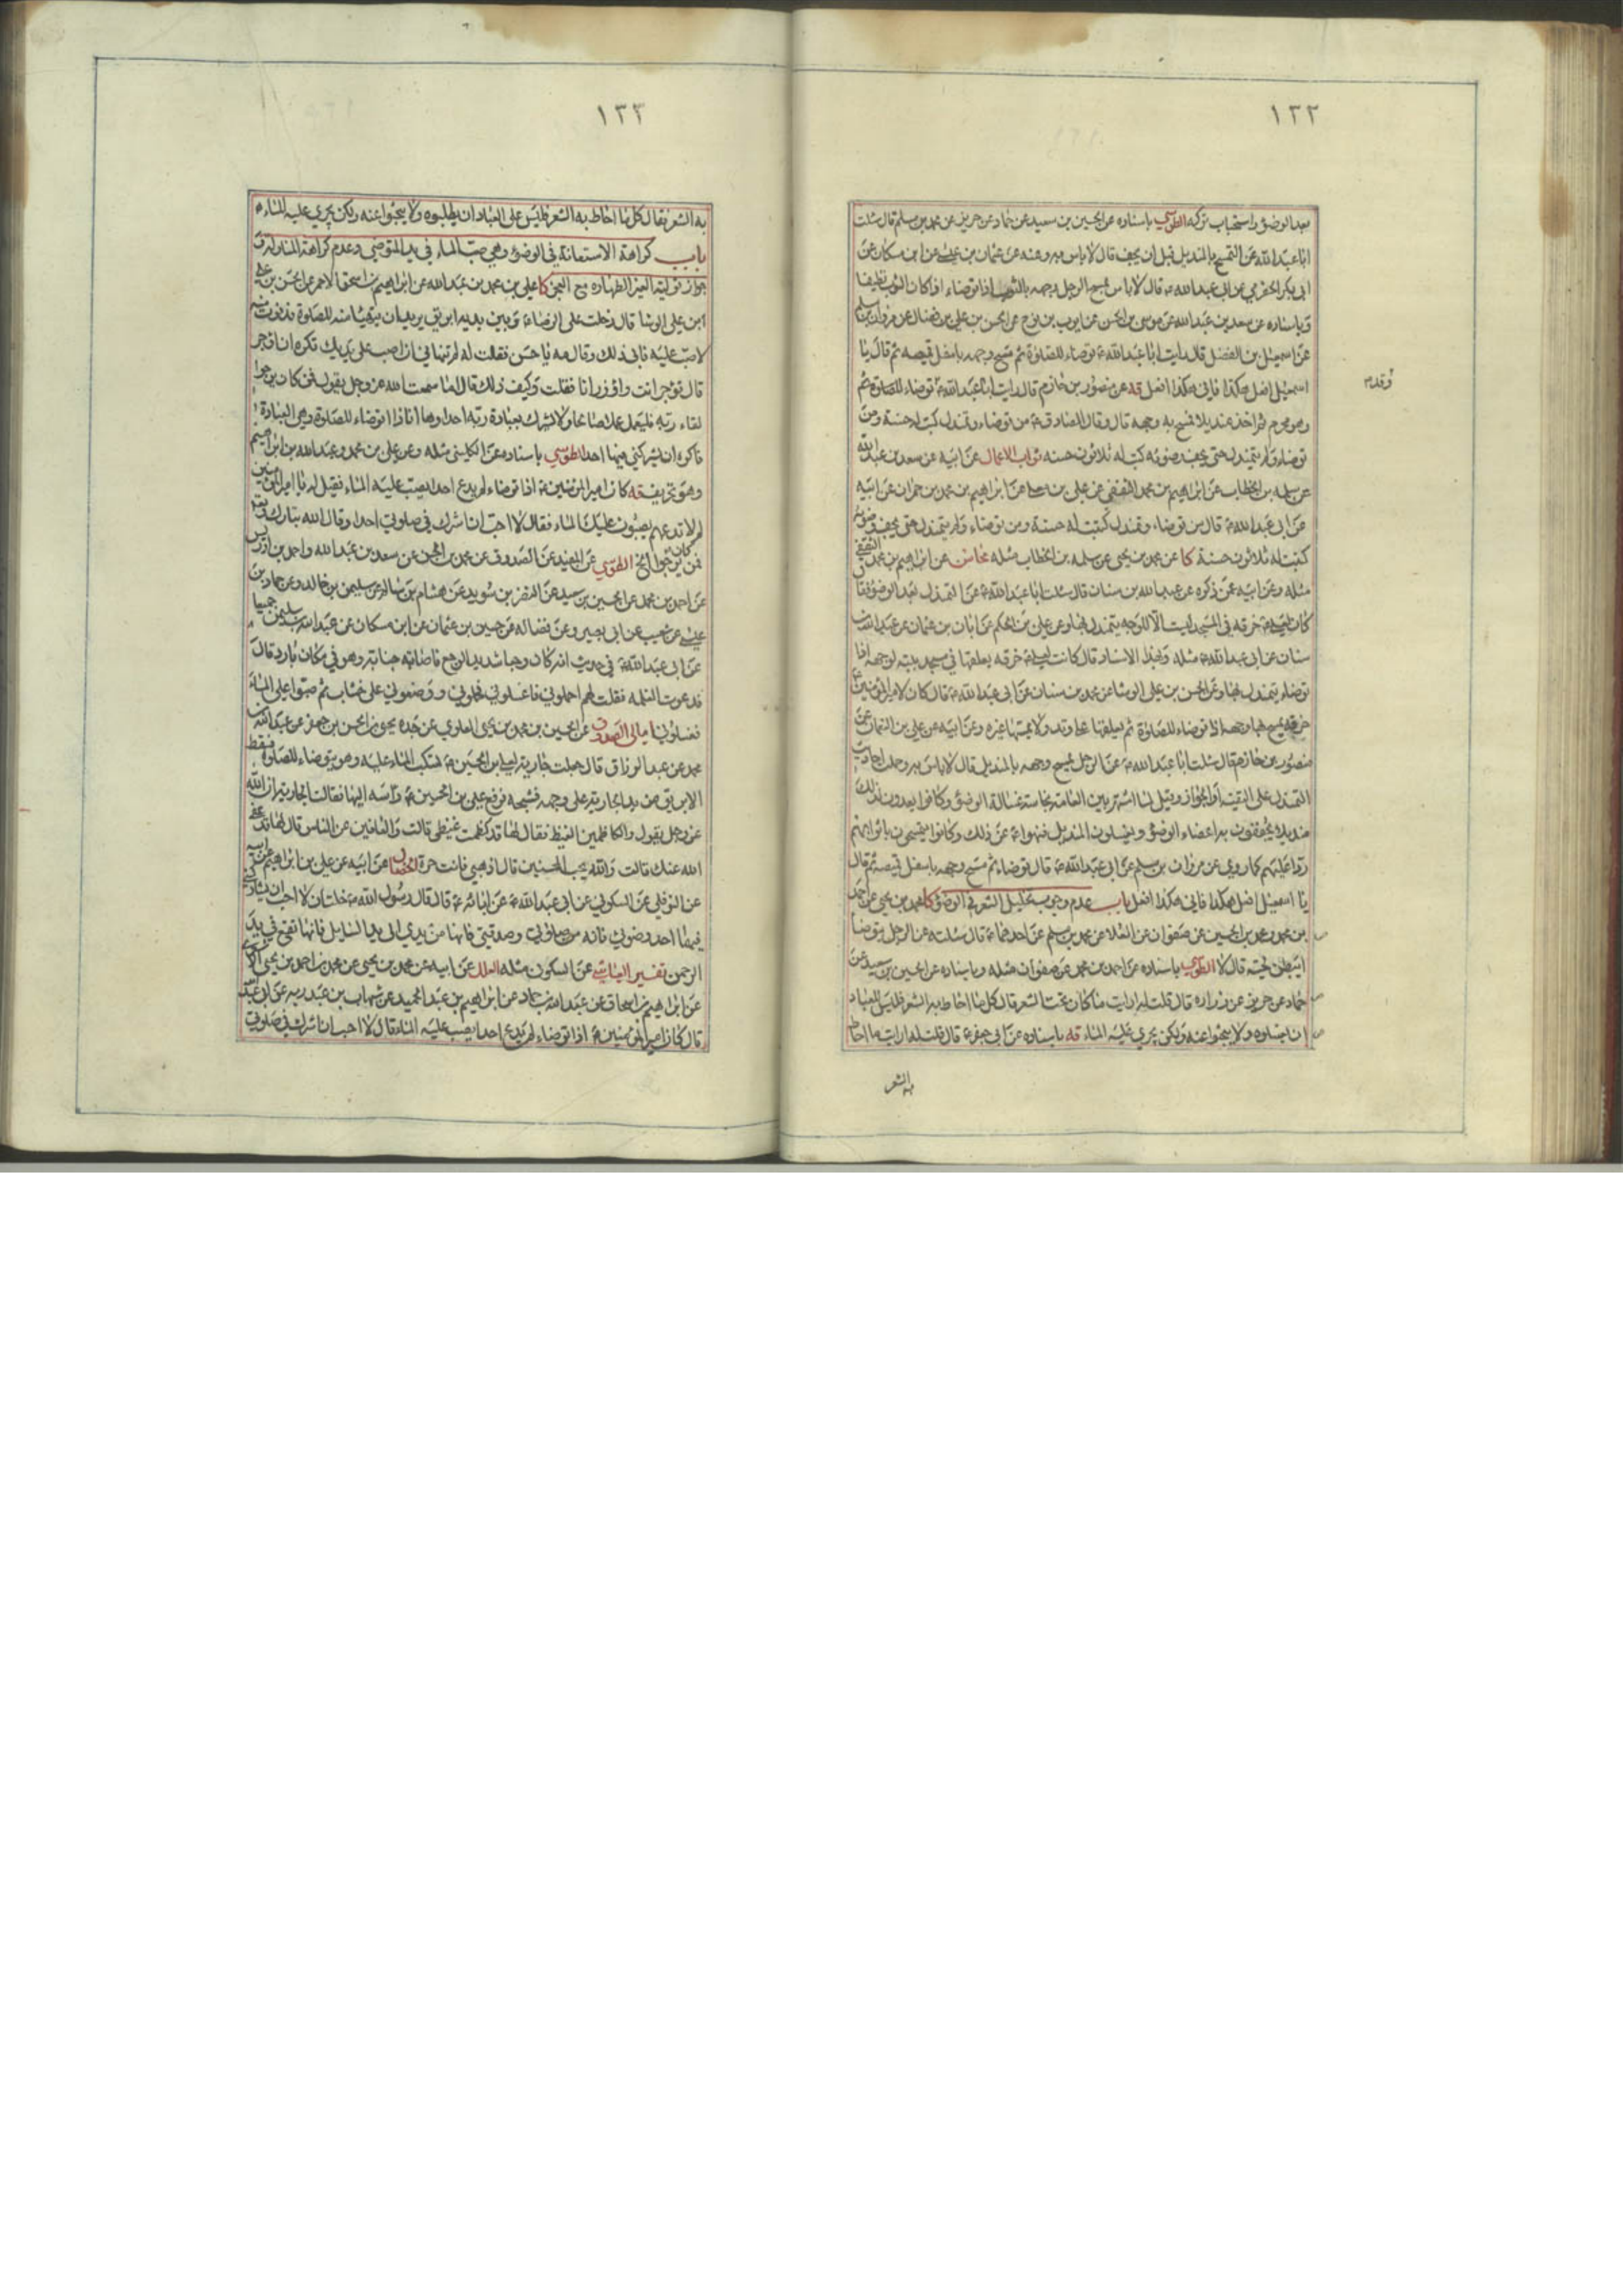 ١٣٢
بعد الوضوء واستحباب تركه الطوسي باسناده عن الحسين بن سعيد عن حماد عن حريز عن محمد بن مسلم قال سئلت
ابا عبد الله عن التمسح بالمنديل قبل ان يجف قال لا باس به وعنه عن عثمان بن عيسى عن ابن مسكان عن
ابي بكر الحضرمي عن ابي عبد الله ع قال لا باس بمسح الرجل وجهه بالثوب اذا توضاء اذا كان الثوب نظيفا
وباسناده عن سعد بن عبد الله عن موسى بن الحسن عن ايوب بن نوح عن الحسن بن علي بن فضال عن مروان بن مسلم
عن اسمعيل بن الفضل قال رايت ابا عبد الله ع توضاء للصلوة ثم مسح وجهه باسفل قميصه ثم قال يا
اسمعيل افعل هكذا فاني هكذا افعل قه عن منصور بن حازم قال رايت ابا عبد الله ع توضاء للصلوة ثم
وهو محرم ثم اخذ منديلا فمسح به وجهه قال وقال الصادق ع من توضاء وتمندل كتب له حسنة ومن
توضاء ولم يتمندل حتى يجف وضوئه كتب له ثلاثون حسنه ثواب الاعمال عن ابيه عن سعد بن عبد الله
عن سلمه بن الخطاب عن ابراهيم بن محمد الثقفي عن علي بن عن ابراهيم بن محمد بن حمران عن ابيه
عن ابي عبد الله ع قال من توضاء وتمندل كتبت له حسنة ومن توضاء ولم يتمندل حتى يجف وضوئه
كتبت له ثلاثون حسنة كا عن محمد بن يحيى عن سلمه بن الخطاب مثله محاسن عن ابراهيم بن محمد الثقفي
مثله وعن ابيه عمن ذكره عن عبد الله بن سنان قال سئلت ابا عبد الله ع عن التمندل بعد الوضوء فقال
كان لعلي ع خرقه في المسجد ليست الا للوجه يتمندل بها وعن علي بن الحكم عن ابان بن عثمان عن عبد الله بن
سنان عن ابي عبد الله ع مثله وبهذا الاسناد قال كانت لعلي ع خرقه يعلقها في مسجد بيته لوجهه اذا
توضاء يتمندل بها وعن الحسن بن علي الوشا عن محمد بن سنان عن ابي عبد الله ع قال كان لامير المؤمنين ع
خرقه يمسح بها وجهه اذا توضاء للصلوة ثم يعلقها على وتد ولا يمسها غيره وعن ابيه عن علي بن النعمان عن
منصور بن حازم قال سئلت ابا عبد الله ع عن الرجل يمسح وجهه بالمنديل قال لا باس به وحملت احاديث
التمندل على التقيه او الجواز وقيل لما اشتهر بين العامة نجاسة غسالة الوضوء وكانوا يعدون لذلك
منديلا يجففون به اعضاء الوضوء ويغسلون المنديل فنهوا ع عن ذلك وكانوا يتمسحون باثوابهم
ردا عليهم كما روي عن مروان بن مسلم عن ابي عبد الله ع قال توضاء ثم مسح وجهه باسفل قميصه ثم قال
يا اسمعيل افعل هكذا فاني هكذا افعل باب عدم وجوب تخليل الشعر في الوضوء كا محمد بن يحيى عن احمد
بن محمد ومحمد بن الحسين عن صفوان عن العلا عن محمد بن مسلم عن احدهما ع قال سئلته عن الرجل يتوضا
ايبطن لحيته قال لا الطوسي باسناده عن احمد بن محمد عن صفوان مثله وباسناده عن الحسين بن سعيد عن
حماد عن حريز عن زراره قال قلت له ارايت ما كان تحت الشعر قال كل ما احاط به الشعر فليس للعباد
ان يغسلوه ولا يبحثوا عنه ولكن يجري عليه الماء قه باسناده عن ابي جعفر ع قال قلت له ارايت ما احاط
به الشعر
١٣٣
به الشعر فقال كل ما احاط به الشعر فليس على العباد ان يطلبوه ولا يبحثوا عنه ولكن يجري عليه الماء
باب كراهة الاستعانة في الوضوء وهي صب الماء في يد المتوضي وعدم كراهة المناولة و
جواز تولية الغير الطهاره مع العجز كا علي بن محمد بن عبد الله عن ابراهيم بن اسحق الاحمر عن الحسن بن علي
ابن علي الوشا قال دخلت على الرضا ع وبين يديه ابريق يريد ان يتهيا منه للصلوة فدنوت منه
لاصب عليه فابى ذلك وقال مه يا حسن فقلت له لم تنهاني ان اصب على يديك تكره ان اوجر
قال توجر انت واوزر انا فقلت وكيف ذلك فقال اما سمعت الله عز وجل يقول فمن كان يرجوا
لقاء ربه فليعمل عملا صالحا ولا يشرك بعبادة ربه احدا وها انا ذا اتوضاء للصلوة وهي العبادة
فاكره ان يشركني فيها احد الطوسي باسناده عن الكليني مثله وعن علي بن محمد وعبد الله بن ابراهيم
كان امير المؤمنين ع اذا توضاء لم يدع احدا يصب عليه الماء فقيل له يا امير المؤمنين
لم لا تدعهم يصبون عليك الماء فقال لا احب ان اشرك في صلوتي احدا وقال الله تبارك وتعالى
فمن كان يرجوا الخ الطوسي عن المفيد عن الصدوق عن محمد بن الحسن عن سعد بن عبد الله واحمد بن ادريس
عن احمد بن محمد عن الحسين بن سعيد عن النضر بن سويد عن هشام بن سالم عن سليمن بن خالد وعن حماد بن
عيسى عن شعيب عن ابي بصير وعن فضاله عن حسين بن عثمان عن ابن مسكان عن عبد الله بن سليمن جميعا
عن ابي عبد الله ع في حديث انه كان وجعا شديد الوجع فاصابته جنابة وهو في مكان بارد قال
فدعوت الغلمه فقلت لهم احملوني فاغسلوني فحملوني ووضعوني على خشبات ثم صبوا علي الماء
فغسلوني امالي الصدوق عن الحسين بن محمد بن يحيى العلوي عن جده يحيى بن الحسن بن جعفر عن عبد الله بن
محمد عن عبد الرزاق قال جعلت جارية لعلي بن الحسين ع تسكب الماء عليه وهو يتوضاء للصلوة فسقط
الابريق من يد الجارية على وجهه فشجه فرفع علي بن الحسين ع راسه اليها فقالت الجارية ان الله
عز وجل يقول والكاظمين الغيظ فقال لها قد كظمت غيظي قالت والعافين عن الناس قال لها قد عفى
الله عنك قالت والله يحب المحسنين قال اذهبي فانت حرة الخصال عن ابيه عن علي بن ابراهيم عن ابيه
عن النوفلي عن السكوني عن ابي عبد الله ع عن ابائه ع قال قال رسول الله ص خلتان لا احب ان يشاركني
فيهما احد وضوئي فانه من صلوتي وصدقتي فانها من يدي الى يد السايل فانها تقع في يد
الرحمن تفسير العياشي عن السكوني مثله العلل عن ابيه عن محمد بن يحيى عن محمد بن احمد بن يحيى
عن ابراهيم بن اسحاق عن عبد الله بن حماد عن ابراهيم بن عبد الحميد عن شهاب بن عبد ربه عن ابي عبد الله
قال كان امير المؤمنين ع اذا توضاء لم يدع احدا يصب عليه الماء قال لا احب ان اشرك في صلوتي